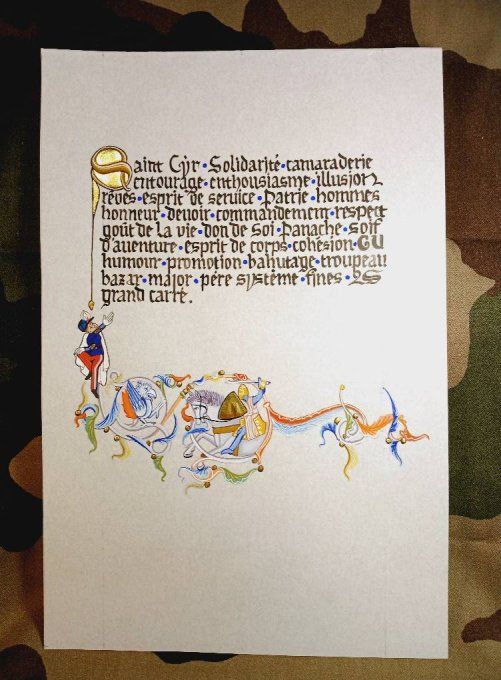 Saint Cyr • Solidarité • camaraderie
entourage • enthousiasme • illusion
rêves • esprit de service • Patrie • hommes
honneur • devoir • commandement • respect
goût de la vie • don de soi • Panache • soif
d'aventure • esprit de corps • cohésion • GU
humour • promotion • bahutage • troupeau
bazar • major • père système • fines • 2S
grand carré.